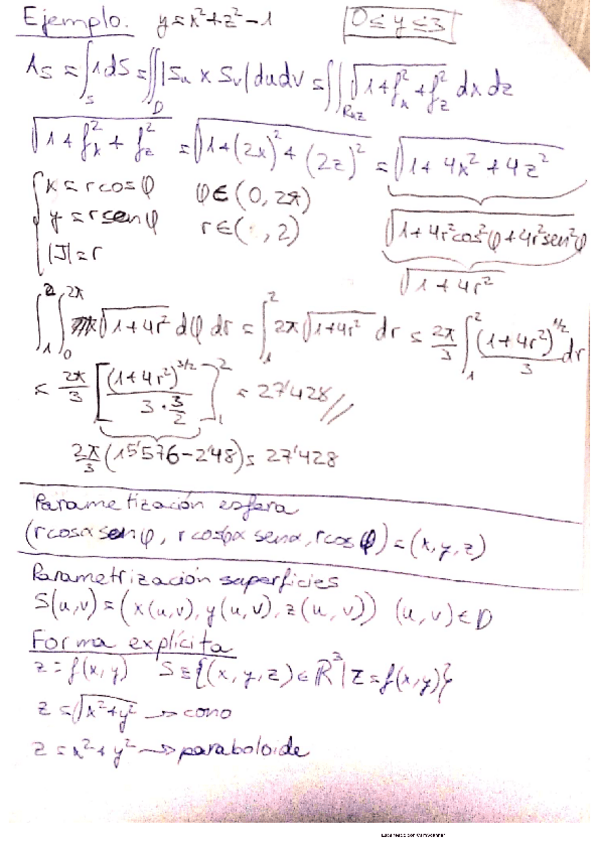 Ejemplo. y = x² + z² - 1 0 ≤ y ≤ 3
As = ∫_S 1 dS = ∬_D |Su × Sv| du dv = ∬_Rxz √(1 + f_x² + f_z²) dx dz
√(1 + f_x² + f_z²) = √(1 + (2x)² + (2z)²) = √(1 + 4x² + 4z²)
{ x = r cos φ φ ∈ (0, 2π)
y = r sen φ r ∈ ( , 2) √(1 + 4r² cos² φ + 4r² sen² φ)
|J| = r √(1 + 4r²)
∫_1^2 ∫_0^2π √(1 + 4r²) dφ dr = ∫_1^2 2π √(1 + 4r²) dr = 2π/3 ∫_1^2 (1 + 4r²)^1/2 / 3 dr
= 2π/3 [ (1 + 4r²)^3/2 / (3 · 3/2) ]_1^2 = 27'428 //
2π/3 (15'576 - 2'48) = 27'428
Parametización esfera
(r cos α sen φ, r cos α sen α, r cos φ) = (x, y, z)
Parametrización superficies
S(u,v) = (x(u,v), y(u,v), z(u,v)) (u,v) ∈ D
Forma explícita
z = f(x,y) S ≡ {(x, y, z) ∈ ℝ³ | z = f(x,y)}
z = √(x² + y²) → cono
z = x² + y² → paraboloide